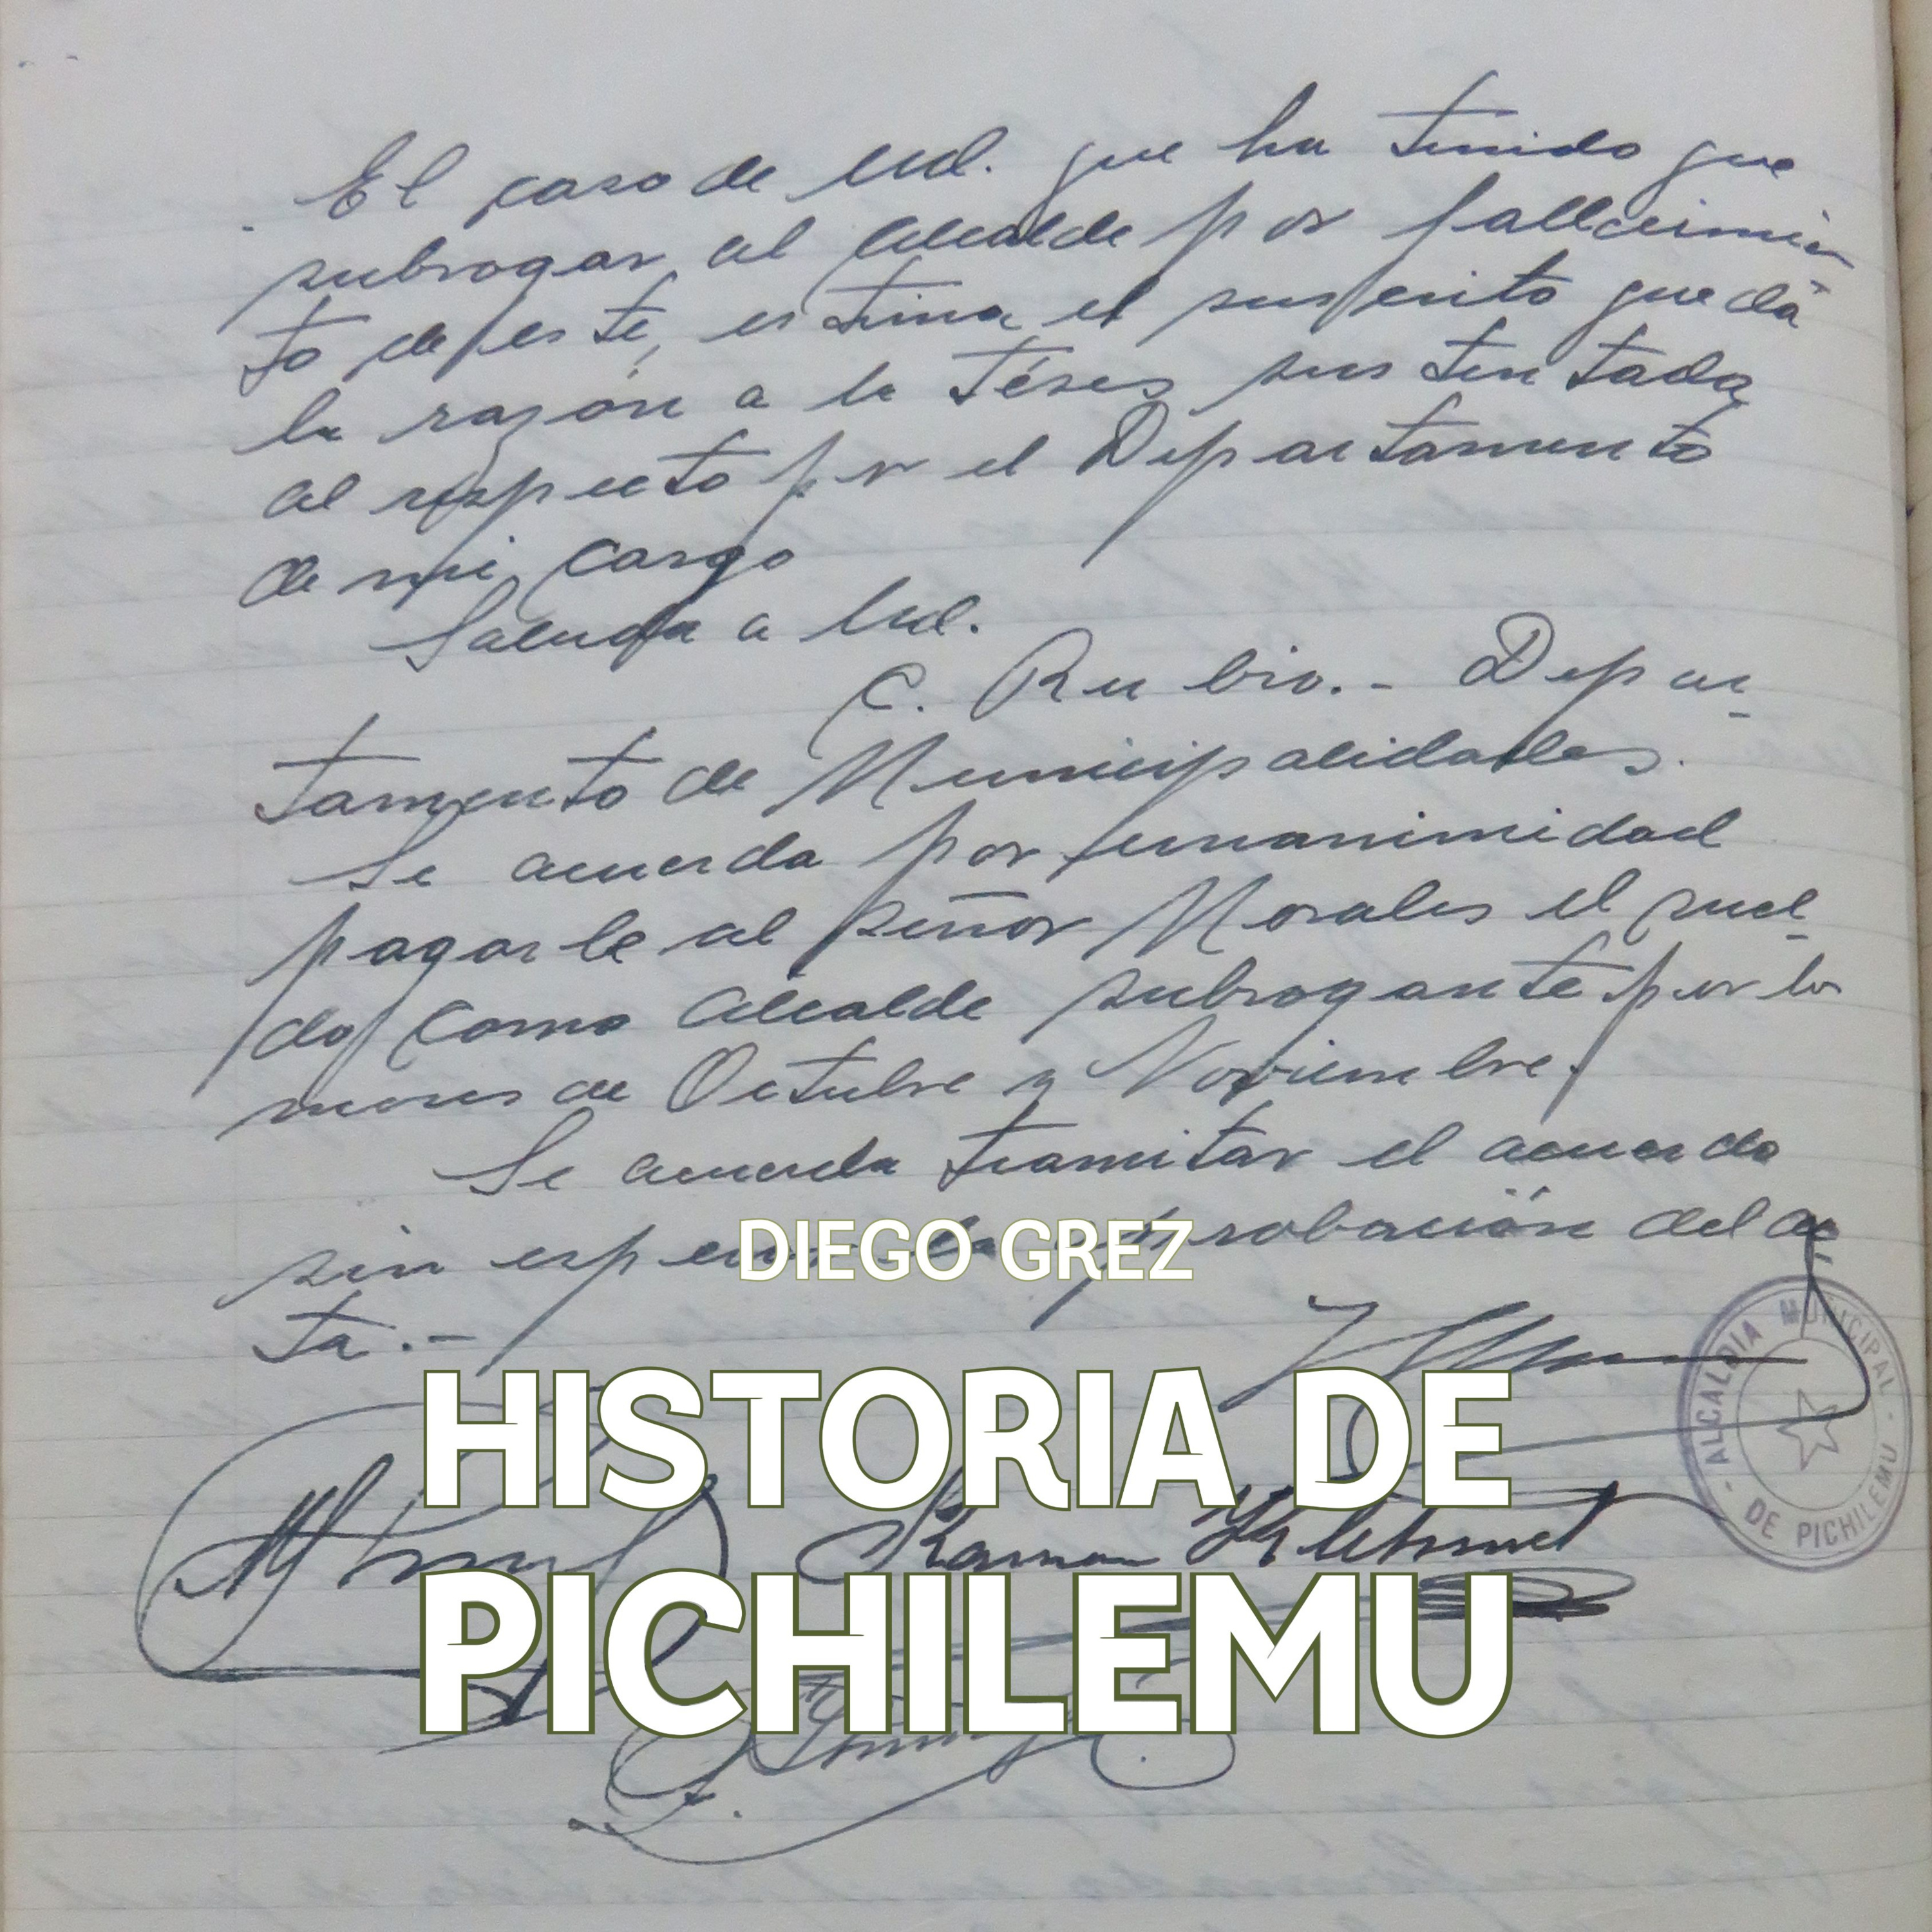 El caso de Ud. que ha tenido que
subrogar al Alcalde por fallecimien-
to de este, estima el suscrito que da
la razón a la Tésis sustentada
al respecto por el Departamento
de mi cargo
Saluda a Ud.
C. Rubio.- Depar-
tamento de Municipalidades.
Se acuerda por unanimidad
pagarle al señor Morales el suel-
do como Alcalde subrogante por los
meses de Octubre y Noviembre.
Se acuerda tramitar el acuerdo
sin esperar la aprobación del ac-
ta.-
DIEGO GREZ
HISTORIA DE
PICHILEMU
ALCALDIA MUNICIPAL
DE PICHILEMU
Ramon